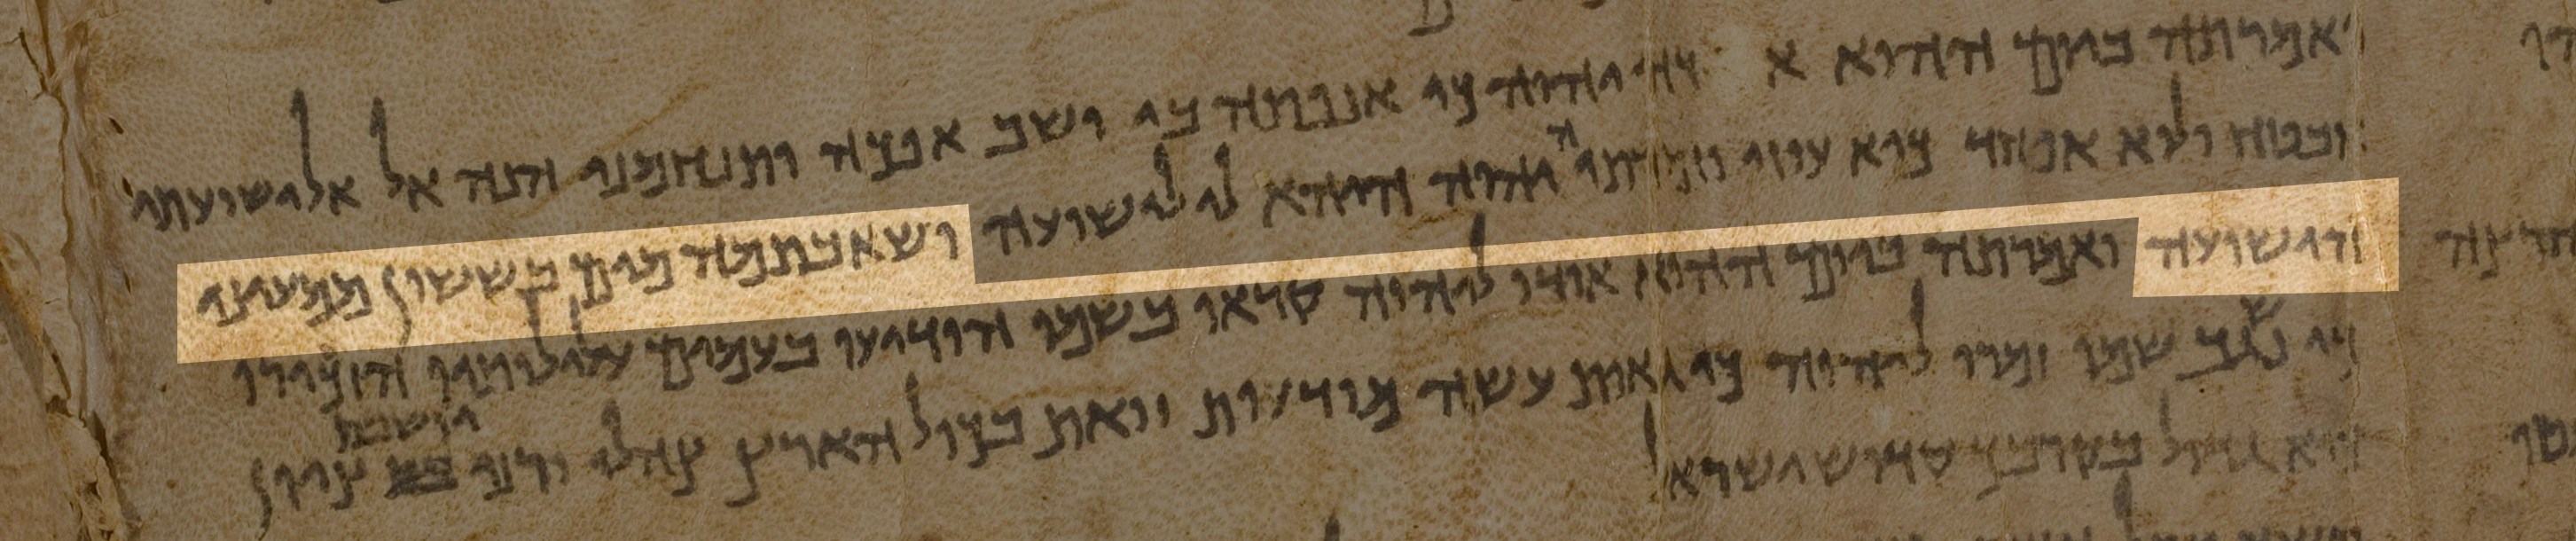 ואמרתה ביום ההוא א דך יהוה כי אנפתה בי ישב אפכה ותנחמני הנה אל אל ישועתי
אבטח ולוא אפחד כיא עוזי וזמרתיה יהוה היהא לי לישועה ושאבתמה מים בששון ממעיני
הישועה ואמרתה ביום ההוא אודו ליהוה קראו בשמו הודיעו בעמים עלילותיו הזכירו
כי נשגב שמו זמרו ליהוה כי גאות עשה מודעות זואת בכול הארץ צהלי ורני יושבת ציון
כיא גדול בקרבך קדוש ישראל